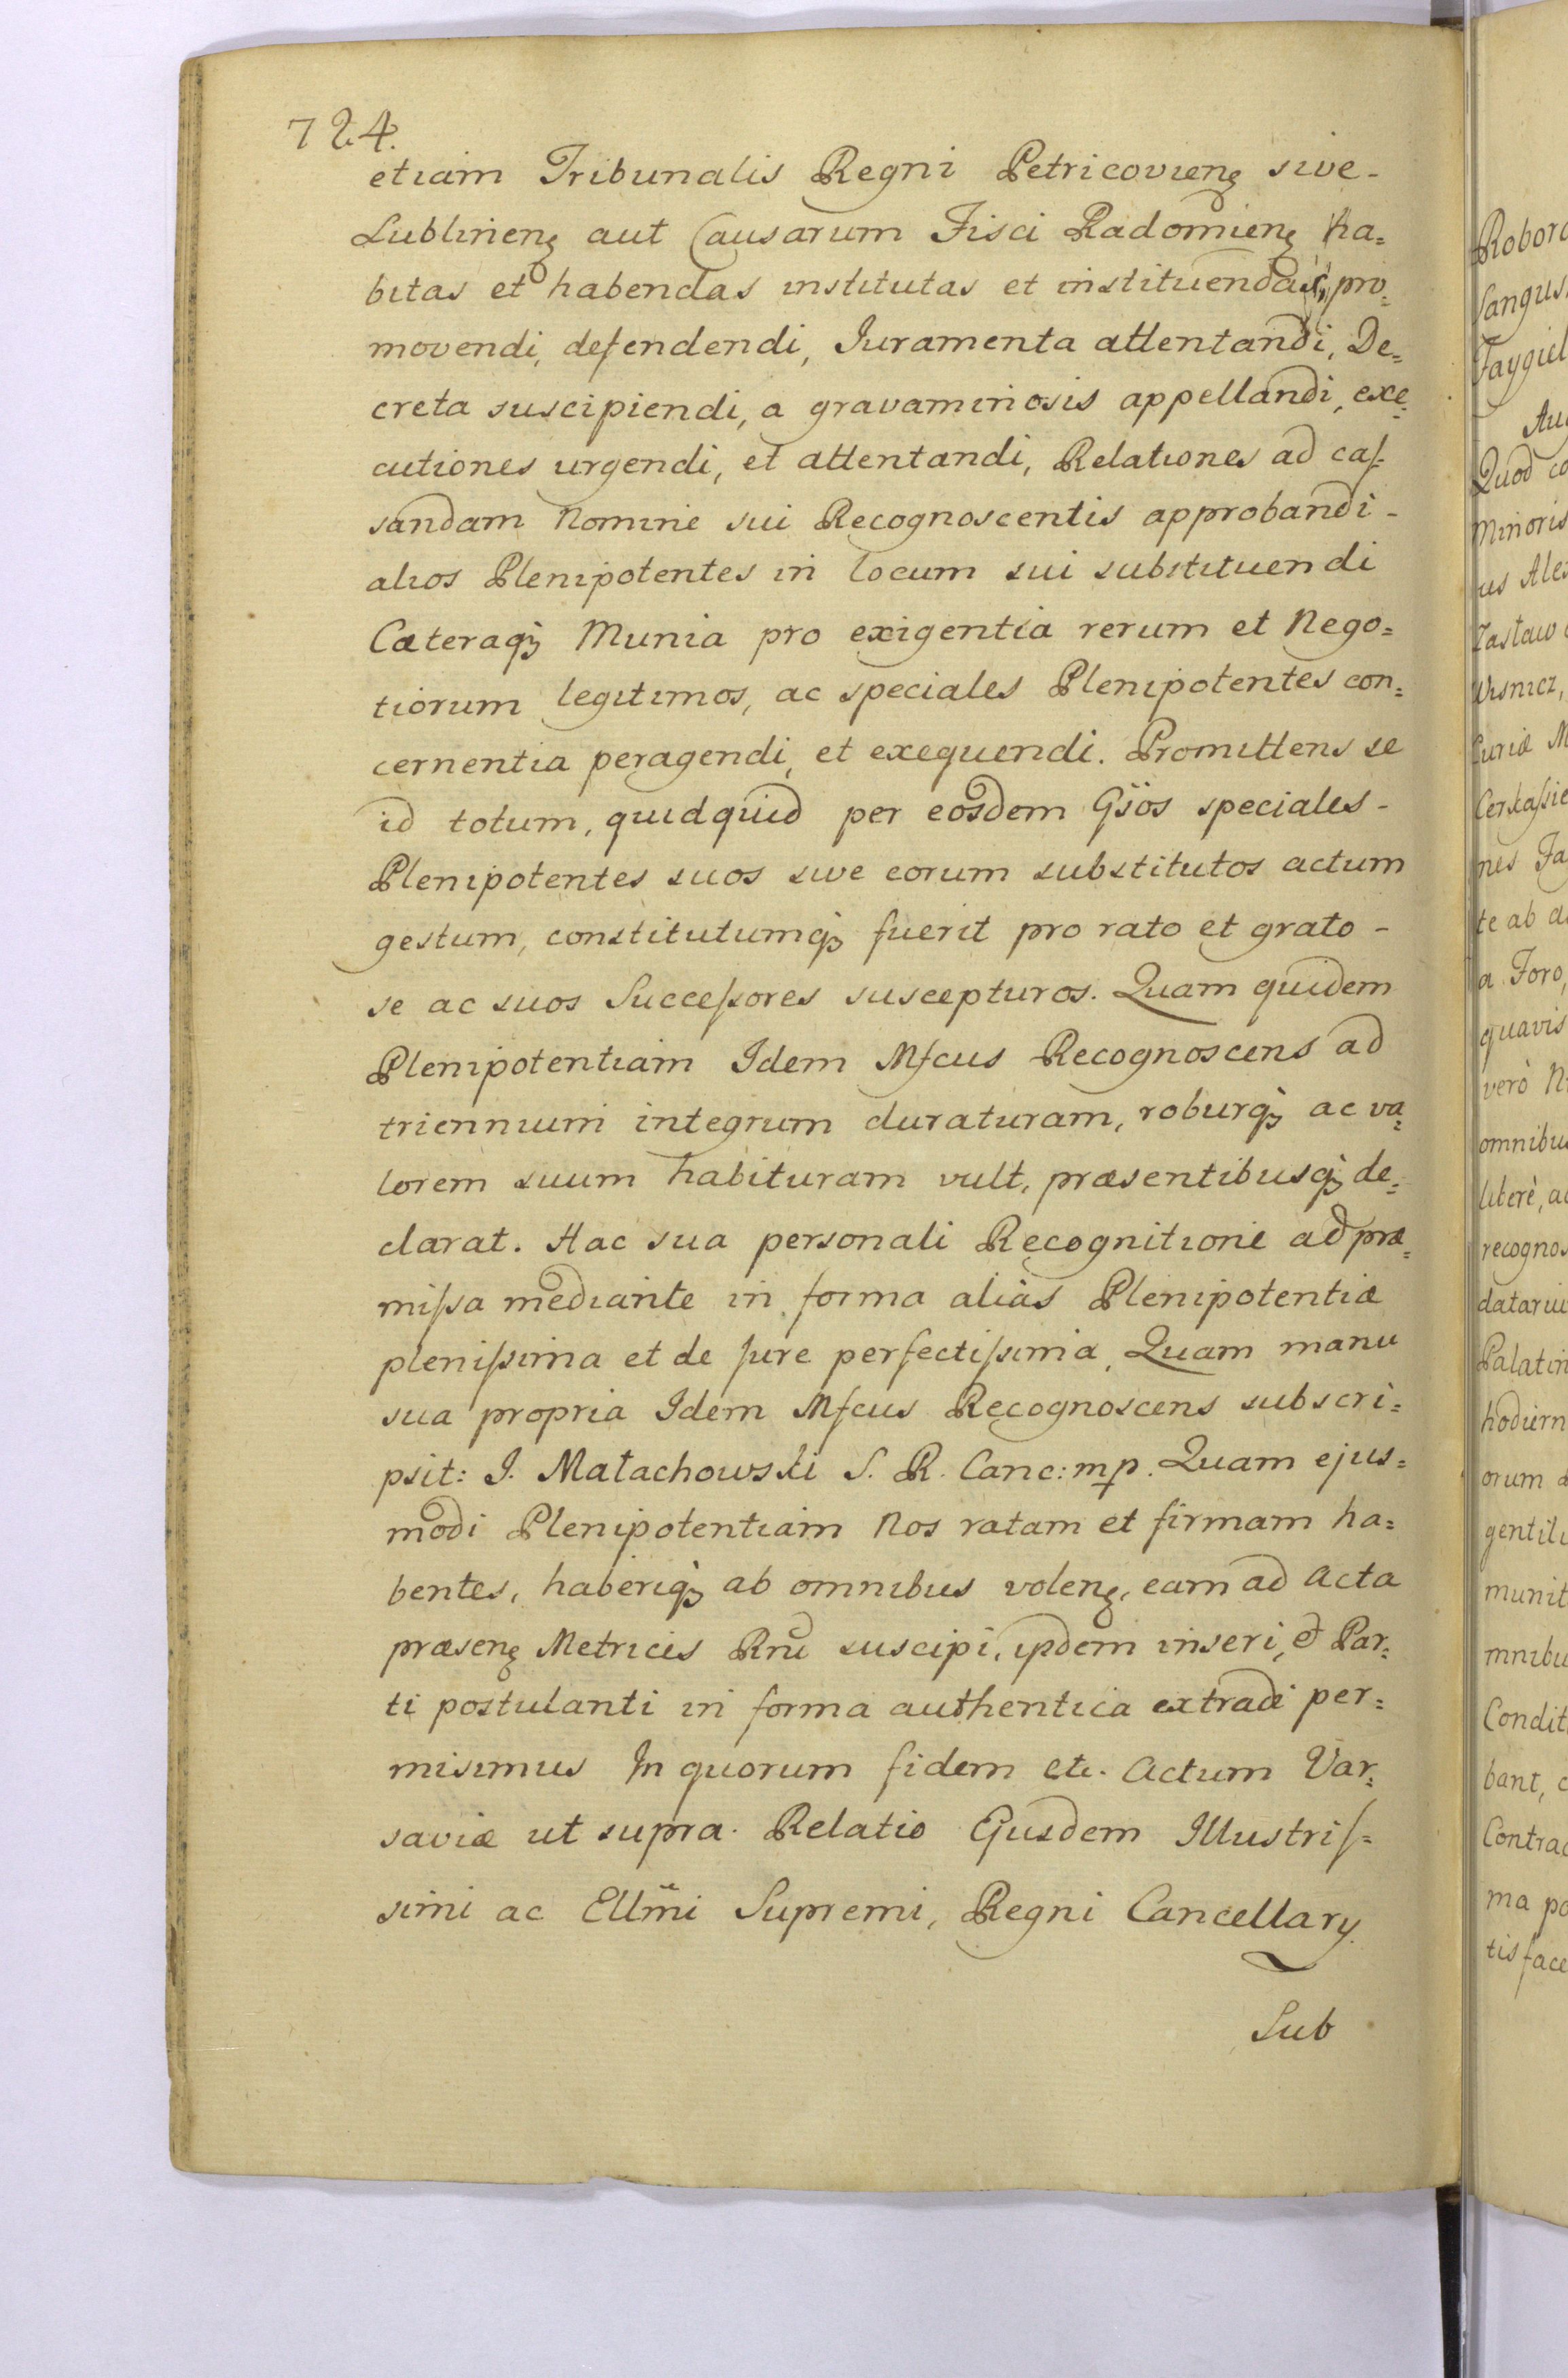 724.
etiam Tribunalis Regni Petricoviens̨ sive-
Lublinens̨ aut Causarum Fisci Radomiens̨ ha=
bitas et habendas institutas et instituendas, pro=
movendi, defendendi, Iuramenta attentandi, De=
creta suscipiendi, a gravaminosis appellandi, exe=
cutiones urgendi, et attentandi, Relationes ad caſ=
sandam Nomine sui Recognoscentis approbandi-
alios Plenipotentes in locum sui substituendi
Cæteraqꝫ Munia pro exigentia rerum et Nego=
tiorum legitimos, ac speciales Plenipotentes con=
cernentia peragendi, et exequendi. Promittens se
id totum, quidquid per eosdem Gsos speciales-
Plenipotentes suos sive eorum substitutos actum
gestum, constitutumqꝫ fuerit pro rato et grato-
se ac suos Succeſsores suscepturos. Quam quidem
Plenipotentiam Idem Mfcus Recognoscens ad
triennium integrum duraturam, roburqꝫ ac va=
lorem suum habituram vult, præsentibusqꝫ de=
clarat. Hac sua personali Recognitione ad præ=
miſsa mediante in forma aliàs Plenipotentiæ
pleniſsima et de jure perfectiſsima, Quam manu
sua propria Idem Mfcus Recognoscens subscri=
psit: J. Małachowski S. R. Canc: mp. Quam ejus=
modi Plenipotentiam Nos ratam et firmam ha=
bentes, haberiqꝫ ab omnibus volens̨, eam ad Acta
præsens̨ Metrices Rni suscipi, ijsdem inseri, et Par=
ti postulanti in forma authentica extradi per=
misimus In quorum fidem etc. Actum Var=
saviæ ut supra. Relatio Ejusdem Illustriſ=
simi ac Ellmi Supremi, Regni Cancellary.
Sub
Robora
Sangus
Faygiel
Quod co
Minoris
us Alex
Zasław
Wisnicz,
Curiæ M
Cerkaſsie
nes Fa
te ab a
a Foro,
quavis
verò N
omnibu
liberè, a
recognos
dataru
Palatin
hodiern
orum a
gentili
munit
mnibu
Condit
bant, c
Contrac
ma po
tisface